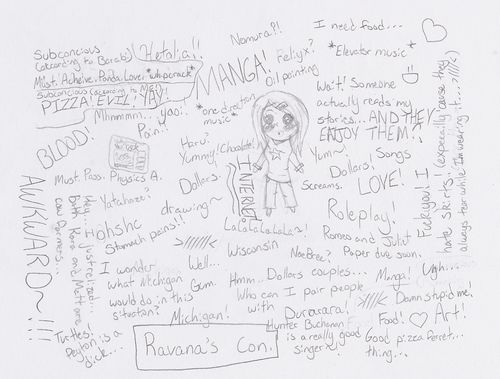 Subconcious
(according to Barab)
Hetalia!!
Must. Acheive. Panda. Love. *whipcrack*
Subconcious (according to Me)
PIZZA! EVIL! YAY~
Mhmmm... yaoi.
Pain..
BLOOD!
Must. Pass. Physics A.
Nomura?!
MANGA!
Feliyx?
Oil painting
*one direction
music*
Haru?
Yummy! Chocolate!
Dollars.
INTERIC!
I need food...
*Elevator music*
Wait! Someone
actually reads my
stories... AND THEY
ENJOY THEM?!
Yum~
Songs
Dollars!
Screams.
LOVE!
Fuck you! I
hate skirts! (especially cause they
always tear while I'm wearing it...>/////<)
AWKWARD~!!!
Hey I just realized...
Both Kana and Matt are
cow farmers...
Yatahaze?
drawing~
Hohshc
Stomach pains!!
>/////<
LaLaLaLaLaLa!
Wisconsin
Roleplay!
Romeo and Juliet
Paper due soon.
NaeBree?
I wonder
what Michigan
would do in this
situatan?
Well...
Gum.
Hmm..
Dollars couples...
Who can I pair people
with
Manga!
Ugh...
>/////<
Damn stupid me!
Michigan!
Durarara!
Food!
Art!
Turtles!
Peyton is a
dick...
Ravana's Con.
Hunter Buchanan
is a really good
singer x)
Good pizza Ferret...
thing...